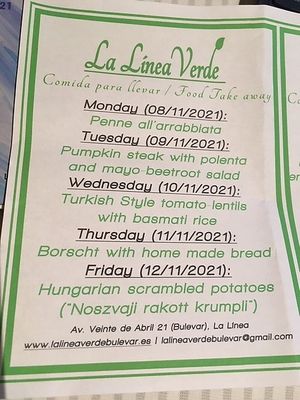 21
La Línea Verde
Comida para llevar / Food Take away
Monday (08/11/2021):
Penne all'arrabbiata
Tuesday (09/11/2021):
Pumpkin steak with polenta
and mayo-beetroot salad
Wednesday (10/11/2021):
Turkish Style tomato-lentils
with basmati rice
Thursday (11/11/2021):
Borscht with home made bread
Friday (12/11/2021):
Hungarian scrambled potatoes
("Noszvaji rakott krumpli")
Av. Veinte de Abril 21 (Bulevar), La Línea
www.lalineaverdebulevar.es | lalineaverdebulevar@gmail.com